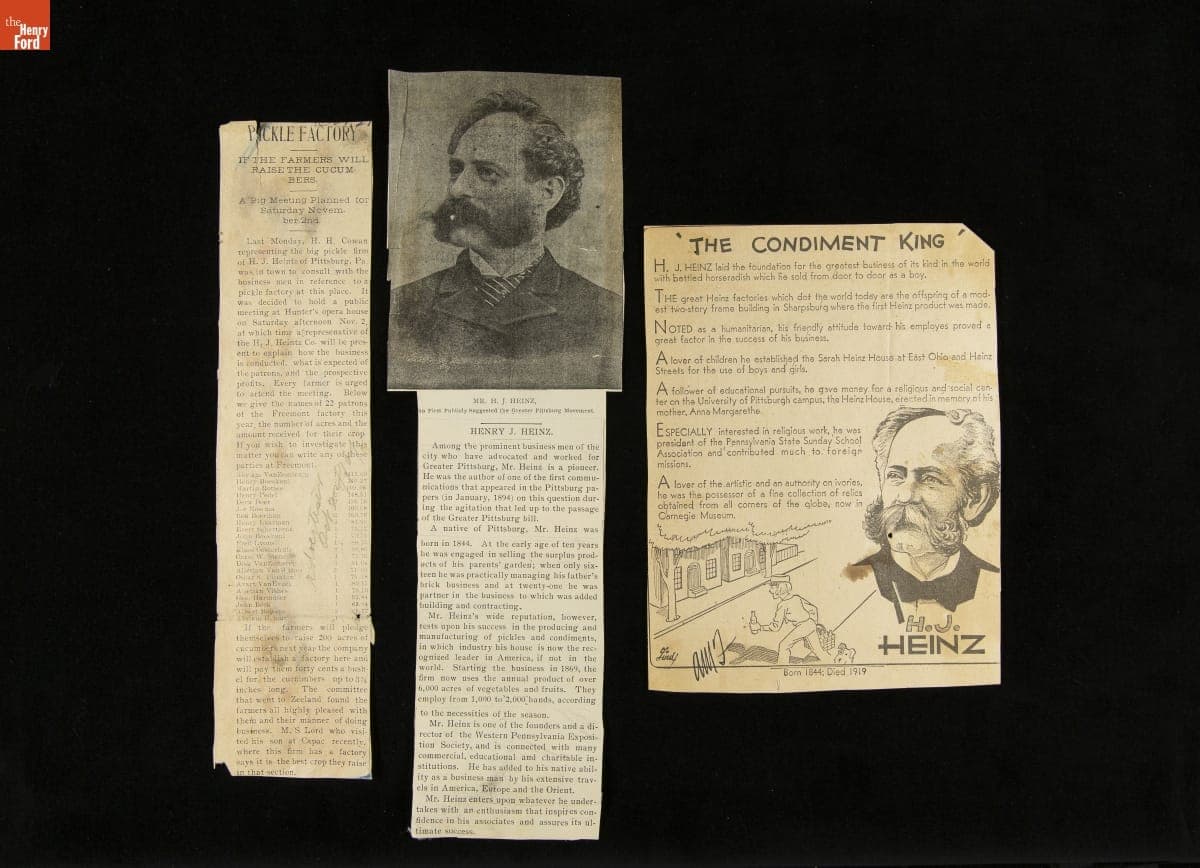 the
Henry
Ford
PICKLE FACTORY
IF THE FARMERS WILL
RAISE THE CUCUM
BERS.
A Big Meeting Planned for
Saturday Novem-
ber 2nd.
Last Monday, H. H. Cowan
representing the big pickle firm
of H. J. Heintz of Pittsburg, Pa.
was in town to consult with the
business men in reference to a
pickle factory at this place. It
was decided to hold a public
meeting at Hunter's opera house
on Saturday afternoon Nov. 2,
at which time a representative of
the H. J. Heintz Co. will be pres-
ent to explain how the business
is conducted, what is expected of
the patrons, and the prospective
profits. Every farmer is urged
to attend the meeting. Below
we give the names of 22 patrons
of the Freemont factory this
year, the number of acres and the
amount received for their crop.
If you wish to investigate this
matter you can write any of these
parties at Freemont.
John Bock
If the farmers will pledge
themselves to raise 200 acres of
cucumbers next year the company
will establish a factory here and
will pay them forty cents a bush-
el for the cucumbers up to 3¾
inches long. The committee
that went to Zeeland found the
farmers all highly pleased with
them and their manner of doing
business. M. S. Lord who visi-
ted his son at Capac recently,
where this firm has a factory
says it is the best crop they raise
in that section.
MR. H. J. HEINZ,
First Publicly Suggested the Greater Pittsburg Movement.
HENRY J. HEINZ.
Among the prominent business men of the
city who have advocated and worked for
Greater Pittsburg, Mr. Heinz is a pioneer.
He was the author of one of the first commu-
nications that appeared in the Pittsburg pa-
pers (in January, 1894) on this question dur-
ing the agitation that led up to the passage
of the Greater Pittsburg bill.
A native of Pittsburg, Mr. Heinz was
born in 1844. At the early age of ten years
he was engaged in selling the surplus prod-
ucts of his parents' garden; when only six-
teen he was practically managing his father's
brick business and at twenty-one he was
partner in the business to which was added
building and contracting.
Mr. Heinz's wide reputation, however,
rests upon his success in the producing and
manufacturing of pickles and condiments,
in which industry his house is now the rec-
ognized leader in America, if not in the
world. Starting the business in 1869, the
firm now uses the annual product of over
6,000 acres of vegetables and fruits. They
employ from 1,000 to 2,000 hands, according
to the necessities of the season.
Mr. Heinz is one of the founders and a di-
rector of the Western Pennsylvania Exposi-
tion Society, and is connected with many
commercial, educational and charitable in-
stitutions. He has added to his native abil-
ity as a business man by his extensive trav-
els in America, Europe and the Orient.
Mr. Heinz enters upon whatever he under-
takes with an enthusiasm that inspires con-
fidence in his associates and assures its ul-
timate success.
'THE CONDIMENT KING'
H. J. HEINZ laid the foundation for the greatest business of its kind in the world
with bottled horseradish which he sold from door to door as a boy.
THE great Heinz factories which dot the world today are the offspring of a mod-
est two-story frame building in Sharpsburg where the first Heinz product was made.
NOTED as a humanitarian, his friendly attitude toward his employes proved a
great factor in the success of his business.
A lover of children he established the Sarah Heinz House at East Ohio and Heinz
Streets for the use of boys and girls.
A follower of educational pursuits, he gave money for a religious and social cen-
ter on the University of Pittsburgh campus, the Heinz House, erected in memory of his
mother, Anna Margarethe.
ESPECIALLY interested in religious work, he was
president of the Pennsylvania State Sunday School
Association and contributed much to foreign
missions.
A lover of the artistic and an authority on ivories,
he was the possessor of a fine collection of relics
obtained from all corners of the globe, now in
Carnegie Museum.
H.J.
HEINZ
Born 1844; Died 1919